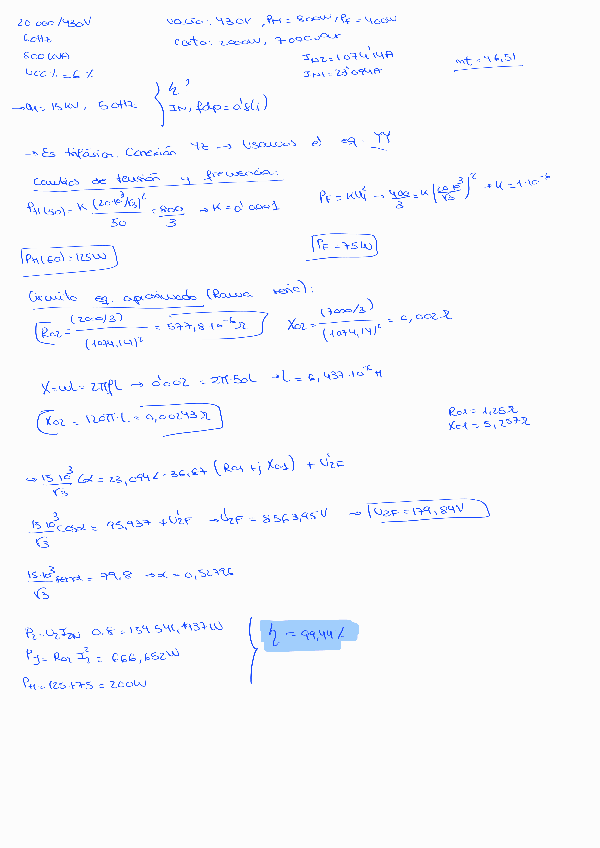 20 000/430V    vacío: 430V, PH = 800W, PF = 400W
60Hz    corto: 2000W, 7000
800 kVA    IN2 = 1074'14A
ucc % = 6 %    IN1 = 23'094A    mt = 46,51
→ u1 = 15kV, 50Hz    η?
IN, fdp = 0'8(i)
→ Es trifásica. Conexión Yz → Usamos el eq YY
Cambios de tensión y frecuencia:
PH(50) = K (20·10³/√3)² / 50 = 800/3 → K = 0'0001    PF = KU² → 400/3 = K (20·10³/√3)² → K = 1·10⁻⁶
PH(60) = 125W    PF = 75W
Circuito eq. aproximado (Rama serie):
R02 = (2000/3) / (1074,14)² = 577,8·10⁻⁶ Ω    X02 = (7000/3) / (1074,14)² = 0,002Ω
X = ωL = 2πfL → 0'002 = 2π50L → L = 6,437·10⁻⁶ H
X02 = 120π·L = 0,00243Ω    R01 = 1,25Ω
X01 = 5,257Ω
→ 15·10³/√3 ∠α = 23,094∠-36,87 (R01 + j X01) + U'2F
15·10³/√3 cos α = 95,937 + U'2F → U'2F = 8563,95V → U2F = 179,84V
15·10³/√3 sen α = 79,8 → α = 0,52796
P2 = U2 I2N 0,8 = 154541,4137W
Pj = R02 I2² = 666,652W    η = 99,44%
PH = 125 + 75 = 200W